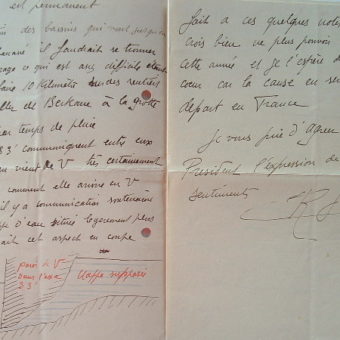 est permanent
des bassins qui vont jusqu'
il faudrait se trouver
ce qui est assez difficile étant
kilomètres des rentrées
de Berkane à la grotte
temps de pluie
33' communiquent entre eux
vient de V très certainement
comment elle arrive en V
il y a communication souterraine
d'eau située légèrement plus
cet aspect en coupe
paroi de V
dans l'axe
33'
Nappe supposée
fait a ces quelques notes
crois bien ne plus pouvoir
cette année et je l'espère de
cœur car la cause en ser
départ en France
Je vous prie d'agréer
Président l'expression de
sentiments